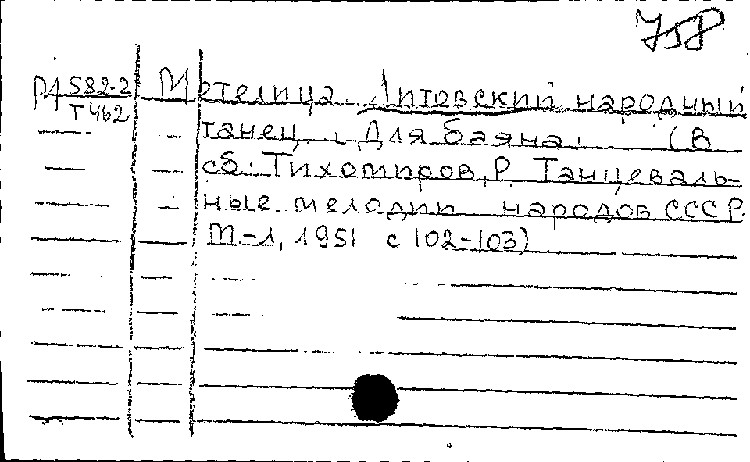 758
М 582-2 Метелица. Литовский народный
Т 462 танец. Для баяна. (В
сб: Тихомиров, Р. Танцеваль-
ные мелодии народов СССР.
М-Л, 1951 с 102-103)